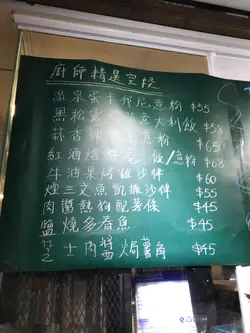 廚師精選空段
溫泉蛋卡邦尼意粉 $55
黑松露 意大利飯 $5
蒜香 意粉 $65
紅酒燴牛尾 飯/意粉 $68
牛油果 沙伴 $60
煙三文魚凱撒沙伴 $55
肉醬熱狗配薯條 $45
鹽燒多春魚 $45
芝士肉醬焗薯角 $45